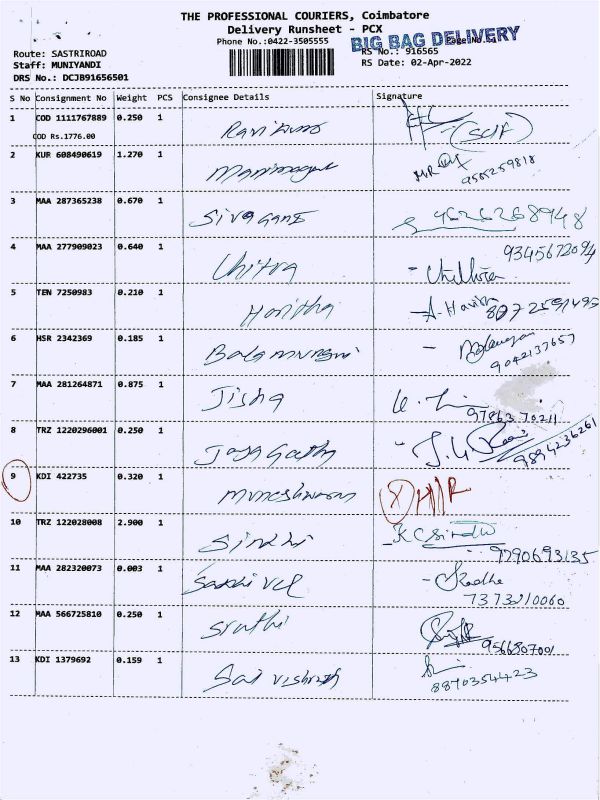 THE PROFESSIONAL COURIERS, Coimbatore
Delivery Runsheet - PCX
Phone No.:0422-3505555
BIG BAG DELIVERY
Route: SASTRIROAD
RS No.: 916565
Staff: MUNIYANDI
RS Date: 02-Apr-2022
DRS No.: DCJB91656501
S No Consignment No Weight PCS Consignee Details Signature
1 COD 1111767889 0.250 1
COD Rs.1776.00
(Self)
2 KUR 608490619 1.270 1
3 MAA 287365238 0.670 1 Sivagami
9626268948
4 MAA 277909023 0.640 1 Chitra
9345672094
5 TEN 7250983 0.210 1 Haritha
6 HSR 2342369 0.185 1 Balamurugan
9042137657
7 MAA 281264871 0.875 1 Jisha
97863 70211
8 TRZ 1220296001 0.250 1
9894236261
9 KDI 422735 0.320 1 Muneshwaran
10 TRZ 122028008 2.900 1 Sindhu KC Sindhu
9790693135
11 MAA 282320073 0.003 1 Sakthivel Radha
7373210060
12 MAA 566725810 0.250 1 Sruthi
9566807001
13 KDI 1379692 0.159 1 Sai vishnu
8870354423